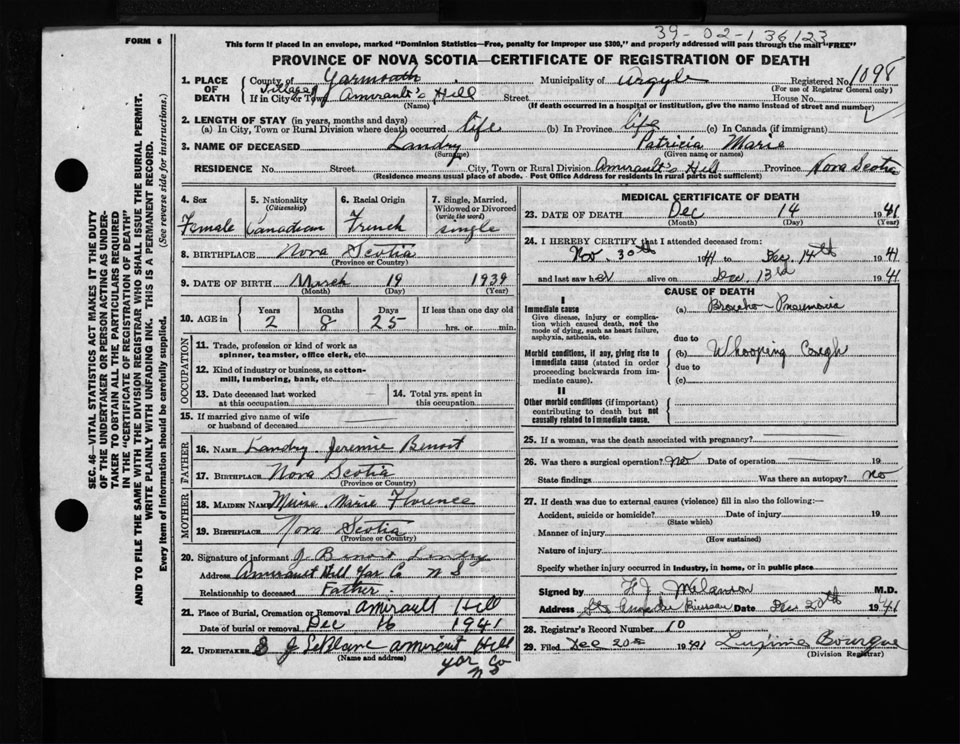 39-02-136123
FORM 6
This form if placed in an envelope, marked "Dominion Statistics—Free, penalty for improper use $300," and properly addressed will pass through the mail "FREE"
PROVINCE OF NOVA SCOTIA—CERTIFICATE OF REGISTRATION OF DEATH
1. PLACE OF DEATH County of Yarmouth Municipality of Argyle Registered No. 1098
(For use of Registrar General only)
Village of If in City or Town Amirault's Hill Street House No.
(Name) (If death occurred in a hospital or institution, give the name instead of street and number)
2. LENGTH OF STAY (in years, months and days)
(a) In City, Town or Rural Division where death occurred life (b) In Province life (c) In Canada (if immigrant)
3. NAME OF DECEASED Landry Patricia Marie
(Surname) (Given name or names)
RESIDENCE No. Street City, Town or Rural Division Amirault's Hill Province Nova Scotia
(Residence means usual place of abode. Post Office Address for residents in rural parts not sufficient)
4. Sex Female
5. Nationality (Citizenship) Canadian
6. Racial Origin French
7. Single, Married, Widowed or Divorced (write the word) single
8. BIRTHPLACE Nova Scotia
(Province or Country)
9. DATE OF BIRTH March 19 1939
(Month) (Day) (Year)
10. AGE in Years 2 Months 8 Days 25 If less than one day old hrs. or min.
OCCUPATION
11. Trade, profession or kind of work as spinner, teamster, office clerk, etc.
12. Kind of industry or business, as cotton-mill, lumbering, bank, etc.
13. Date deceased last worked at this occupation
14. Total yrs. spent in this occupation
15. If married give name of wife or husband of deceased
FATHER
16. NAME Landry Jeremie Benoit
17. BIRTHPLACE Nova Scotia
(Province or Country)
MOTHER
18. MAIDEN NAME Marie Florence
19. BIRTHPLACE Nova Scotia
(Province or Country)
20. Signature of informant J Benoit Landry
Address Amirault Hill Yar Co N S
Relationship to deceased Father
21. Place of Burial, Cremation or Removal Amirault Hill
Date of burial or removal Dec 16 1941
22. UNDERTAKER S J LeBlanc Amirault Hill
(Name and address)
Yar Co
N S
MEDICAL CERTIFICATE OF DEATH
23. DATE OF DEATH Dec 14 1941
(Month) (Day) (Year)
24. I HEREBY CERTIFY that I attended deceased from:
Nov. 30th 1941 to Dec. 14th 1941
and last saw her alive on Dec. 13rd 1941
CAUSE OF DEATH
I
Immediate cause
Give disease, injury or complication which caused death, not the mode of dying, such as heart failure, asphyxia, asthenia, etc.
(a) Broncho-Pneumonia
due to
Morbid conditions, if any, giving rise to immediate cause (stated in order proceeding backwards from immediate cause).
(b) Whooping Cough
due to
(c)
II
Other morbid conditions (if important) contributing to death but not causally related to immediate cause.
25. If a woman, was the death associated with pregnancy?
26. Was there a surgical operation? No Date of operation 19
State findings Was there an autopsy? No
27. If death was due to external causes (violence) fill in also the following:—
Accident, suicide or homicide? Date of injury 19
(State which)
Manner of injury
(How sustained)
Nature of injury
Specify whether injury occurred in industry, in home, or in public place
Signed by H J Melanson M.D.
Address Date Dec 20th 1941
28. Registrar's Record Number 10
29. Filed Dec 20th 1941 Bourque
(Division Registrar)
SEC. 46—VITAL STATISTICS ACT MAKES IT THE DUTY
OF THE UNDERTAKER OR PERSON ACTING AS UNDER-
TAKER TO OBTAIN ALL THE PARTICULARS REQUIRED
IN THE "CERTIFICATE OF REGISTRATION OF DEATH"
AND TO FILE THE SAME WITH THE DIVISION REGISTRAR WHO SHALL ISSUE THE BURIAL PERMIT.
WRITE PLAINLY WITH UNFADING INK. THIS IS A PERMANENT RECORD.
Every item of information should be carefully supplied. (See reverse side for instructions).